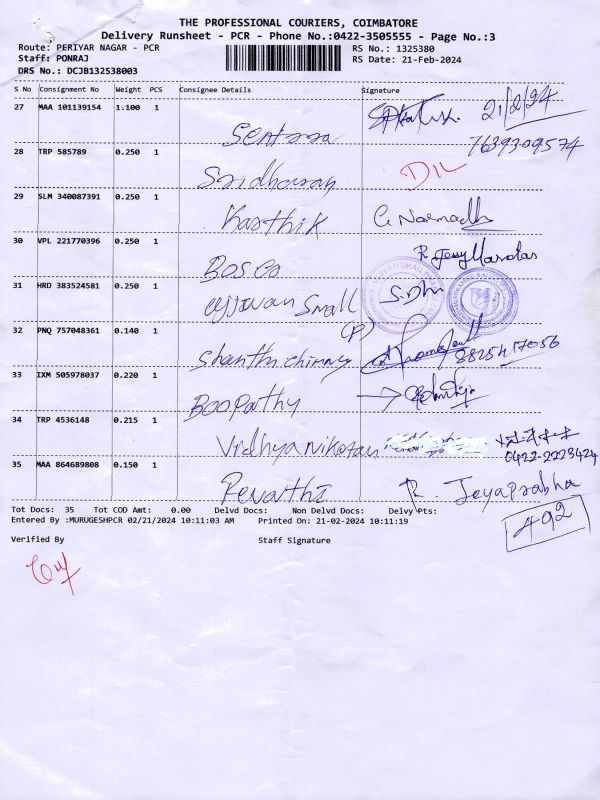 THE PROFESSIONAL COURIERS, COIMBATORE
Delivery Runsheet - PCR - Phone No.:0422-3505555 - Page No.:3
Route: PERIYAR NAGAR - PCR RS No.: 1325380
Staff: PONRAJ RS Date: 21-Feb-2024
DRS No.: DCJB132538003
S No Consignment No Weight PCS Consignee Details Signature
27 MAA 101139154 1.100 1 21/2/24
7639309574
28 TRP 585789 0.250 1 Sridharan
29 SLM 340087391 0.250 1 Karthik
30 VPL 221770396 0.250 1 Bosco
31 HRD 383524581 0.250 1 ujjivan Small
32 PNQ 757048361 0.140 1 Shanthi chinney (P) 8825417056
33 IXM 505978037 0.220 1 Boopathy
34 TRP 4536148 0.215 1 Vidhya niketan 0422-2223424
35 MAA 864689808 0.150 1 Revathi R. Jeyaprabha
Tot Docs: 35 Tot COD Amt: 0.00 Delvd Docs: Non Delvd Docs: Delvy Pts: 492
Entered By :MURUGESHPCR 02/21/2024 10:11:03 AM Printed On: 21-02-2024 10:11:19
Verified By Staff Signature